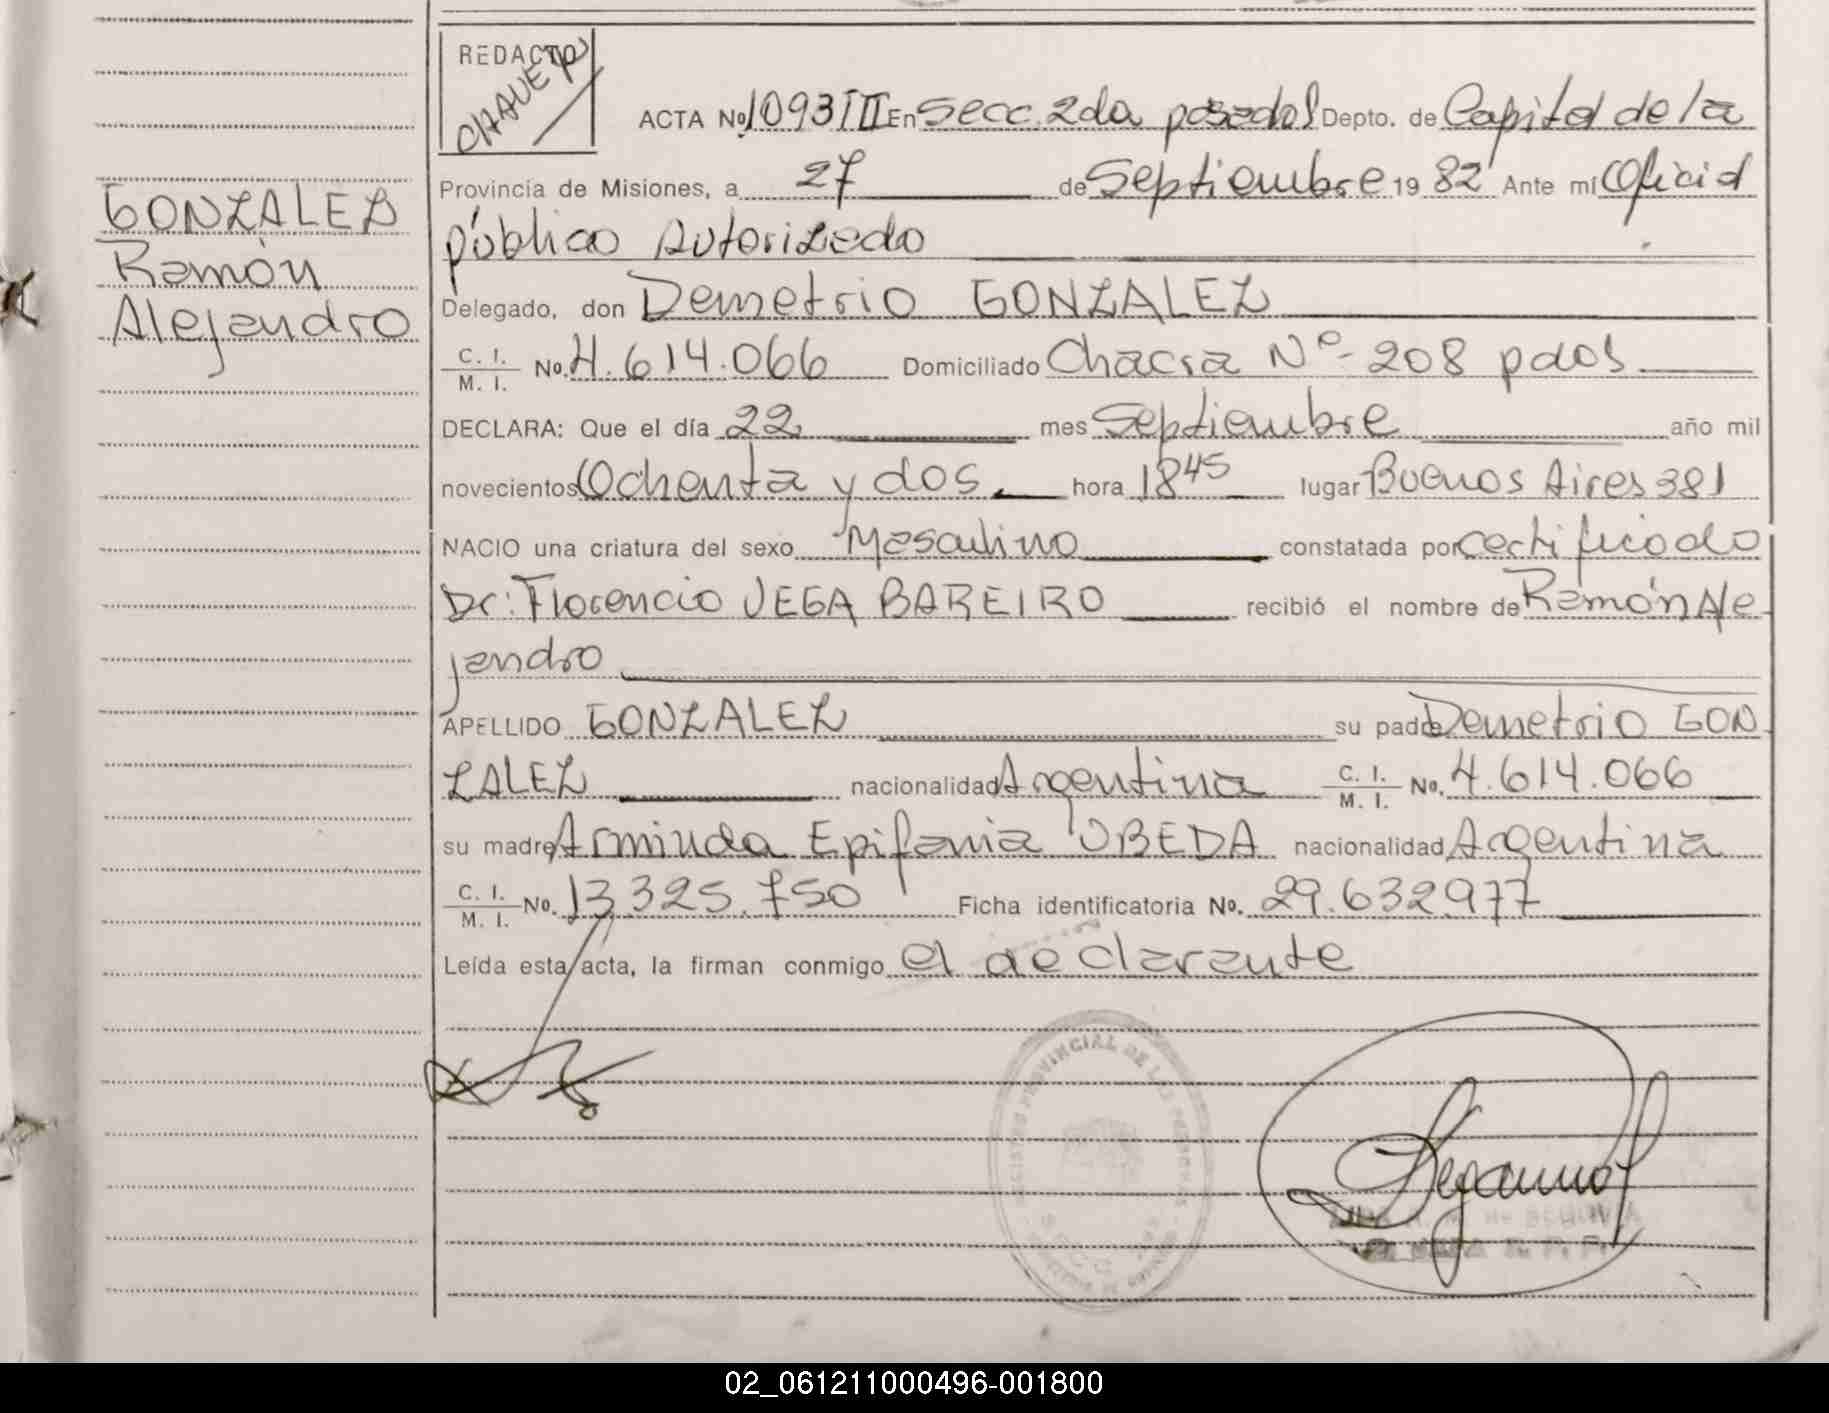 REDACTO
CHAVEZ
ACTA No. 1093 TII En Secc. 2da posadas Depto. de Capital de la
Provincia de Misiones, a 27 de Septiembre 19 82 Ante mí Oficial
público Autorizado
Delegado, don Demetrio GONZALEZ
C. I.
M. I. No. 4.614.066 Domiciliado Chacra Nº- 208 pdas
DECLARA: Que el día 22 mes Septiembre año mil
novecientos Ochenta y dos hora 18 45 lugar Buenos Aires 381
NACIO una criatura del sexo Masculino constatada por certificado
Dr: Florencio VEGA BAREIRO recibió el nombre de Ramón Ale
jandro
APELLIDO GONZALEZ su padre Demetrio GON
ZALEZ nacionalidad Argentina C. I.
M. I. No. 4.614.066
su madre Arminda Epifania UBEDA nacionalidad Argentina
C. I.
M. I. No. 13.325.750 Ficha identificatoria No. 29.632.977
Leída esta acta, la firman conmigo el declarante
GONZALEZ
Ramón
Alejandro
REGISTRO PROVINCIAL DE LAS PERSONAS
02_061211000496-001800